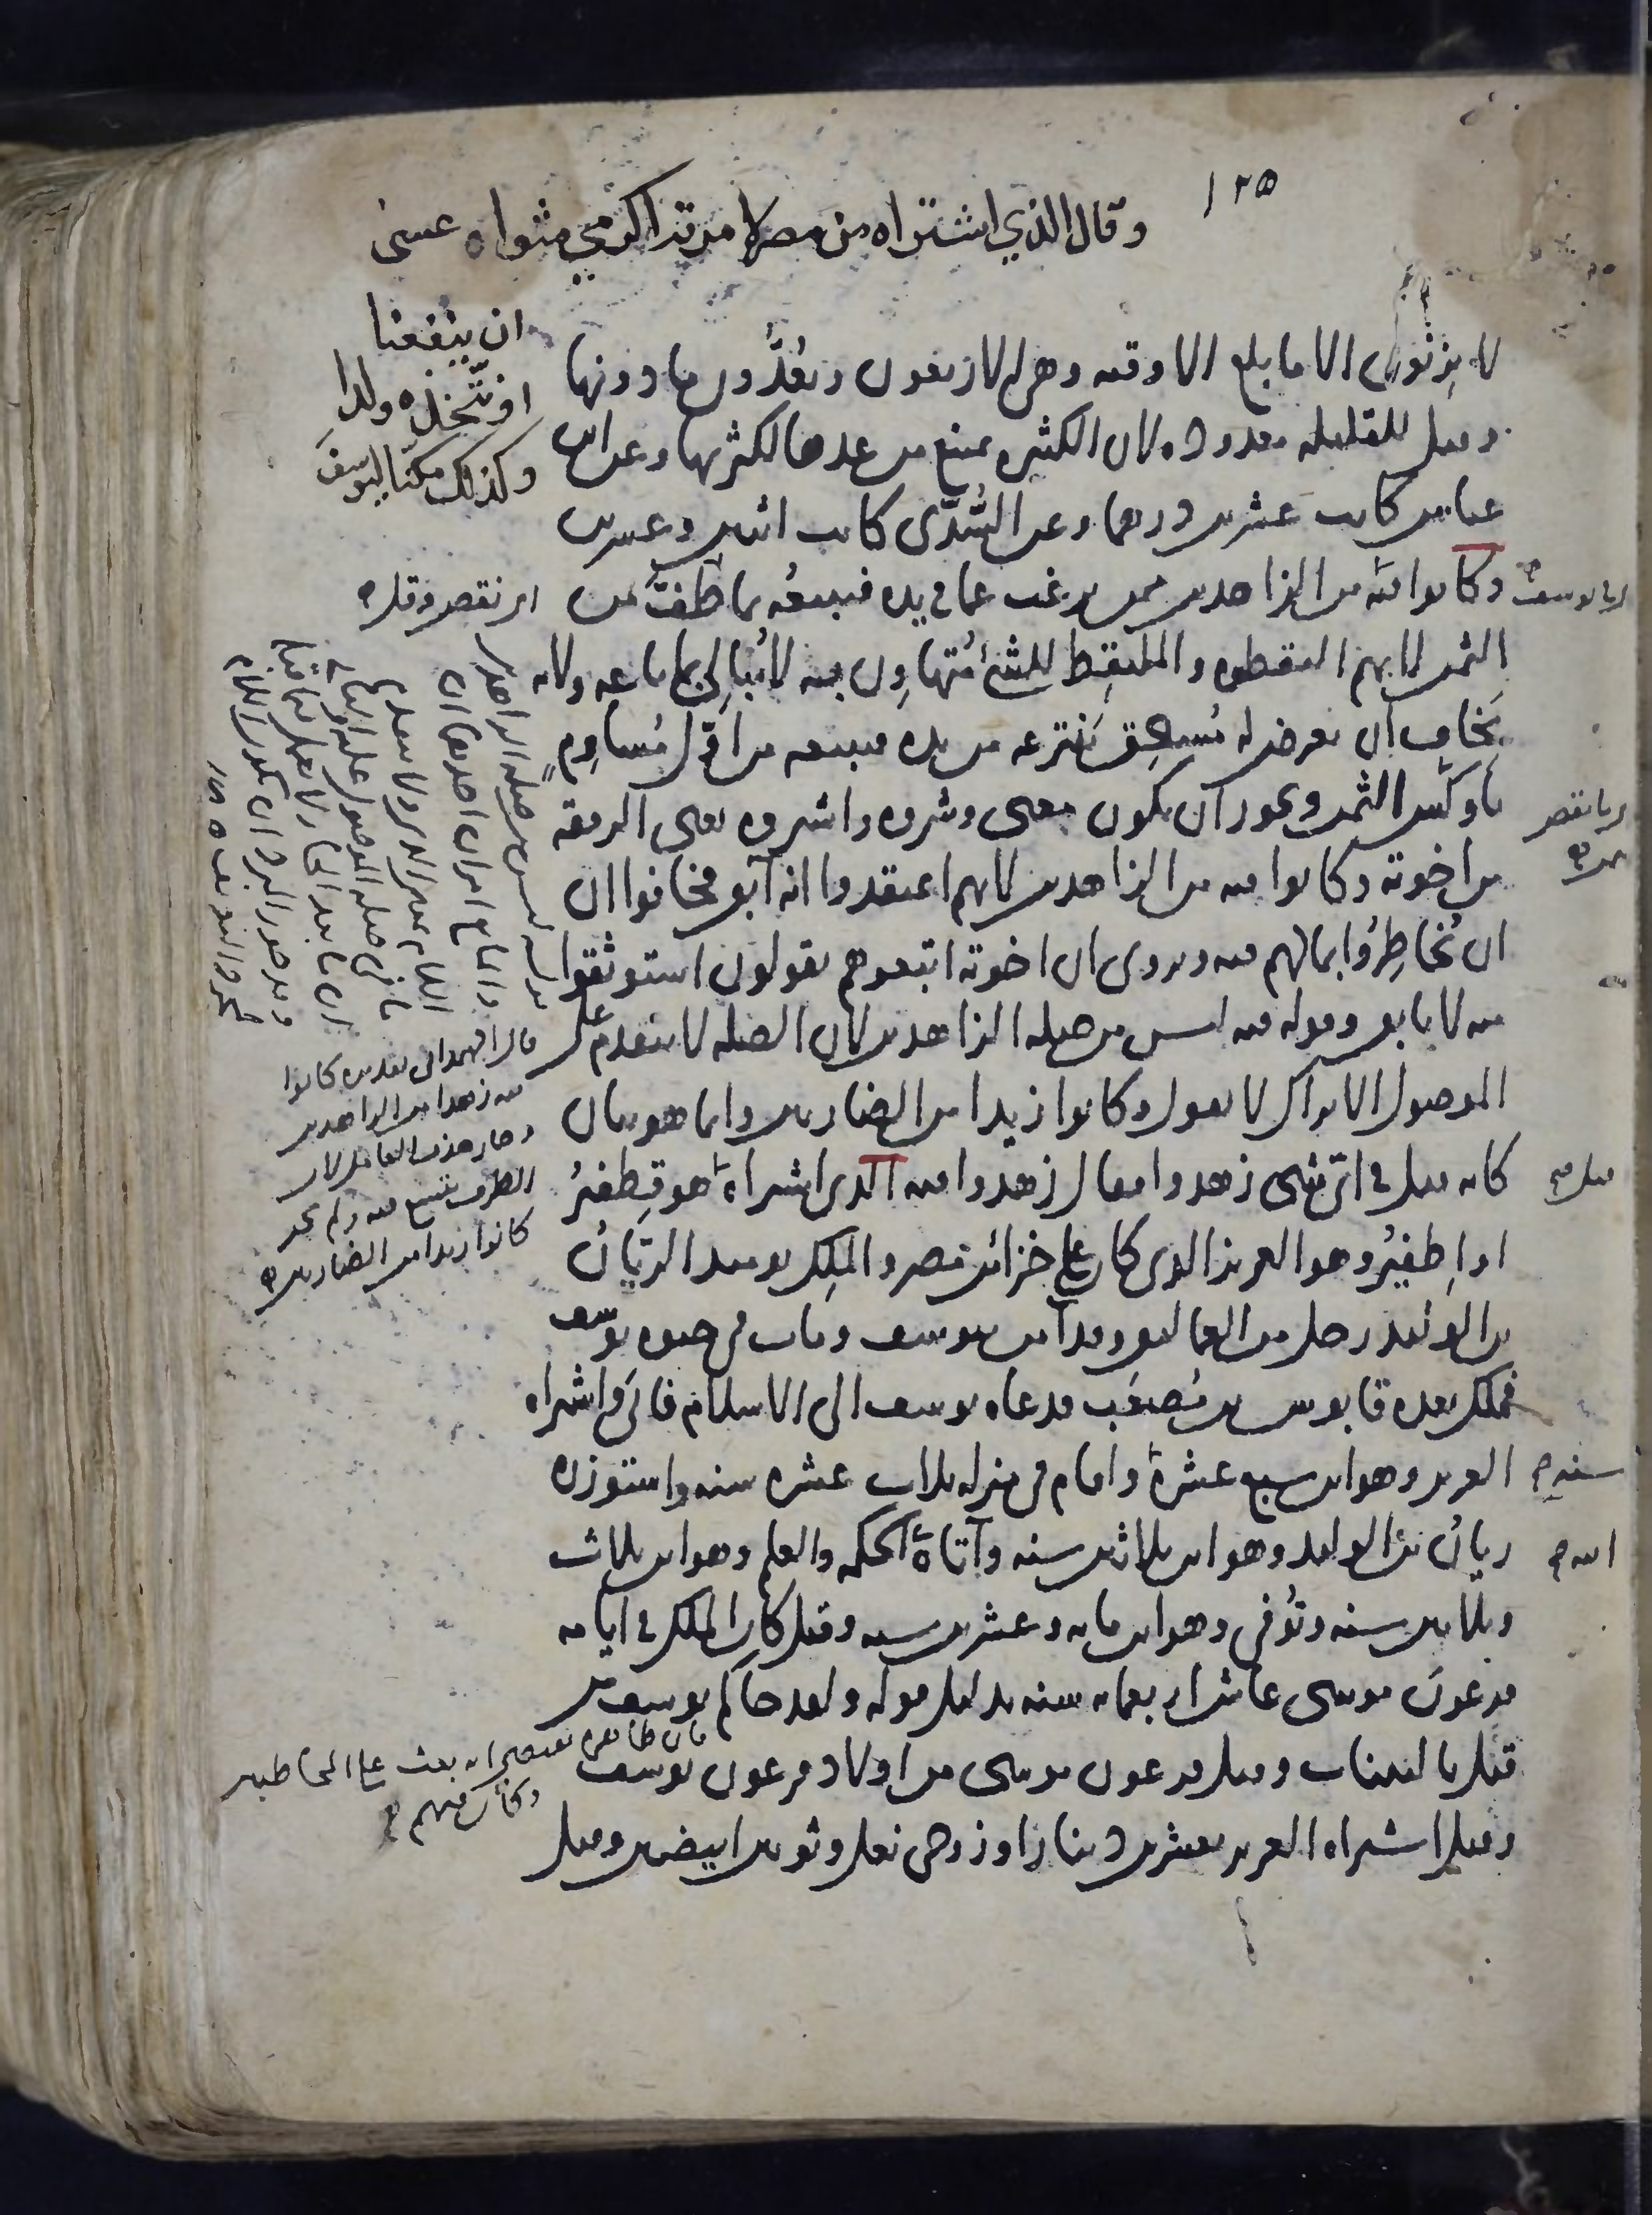 ١٢٥
وقال الذي اشتراه من مصر لامرته اكرمي مثواه عسى
ان ينفعنا
او نتخذه ولدا
وكذلك مكنا ليوسف
لا يزنون الا ما بلغ الاوقيه وهي الاربعون ويعدون ما دونها
وقيل للقليله معدوده لان الكثيره يمنع من عدها لكثرتها وعن ابن
عباس كانت عشرين درهما وعن السُّدّى كانت اثنين وعشرين
وكانوا فيه من الزاهدين ممن يرغب عما في يده فيبيعه بما طفّ من
الثمن لانهم التقطوه والملتقِط للشئ مُتهاوِن به لا يُبالى بما باعه ولانه
يخاف ان يعرض له مُستحِق ينتزعه من يده فيبيعه من اوّل مُساوِمٍ
باوكس الثمن ويجوز ان يكون معنى وشروه واشتروه يعنى الرفقه
من اخوته وكانوا فيه من الزاهدين لانهم اعتقدوا انه آبق فخافوا ان
ان يُخاطِرُوا بمالهم فيه ويروى ان اخوته اتبعوهم يقولون استوثقوا
منه لا يابق وقوله فيه ليس من صله الزاهدين لان الصله لا يتقدم على
الموصول الا تراك لا تقول وكانوا زيدا من الضاربين وانما هو بيان
كانه قيل في اىّ شى زهدوا فقال زهدوا فيه الذى اشتراه هو قِطفِيرُ
او اِطفيرُ وهو العزيز الذى كان على خزائن مصر والملِك يوميد الريّانُ
بن الوليد رجل من العماليق وقد آمن بيوسف ومات فى حيوه يوسف
فملك بعده قابوس بن مُصعَب فدعاه يوسف الى الاسلام فابَى واشتراه
العزيز وهو ابن سبع عشرة واقام فى منزله ثلاث عشره سنه واستوزره
ريانُ بنُ الوليد وهو ابن ثلاثين سنه وآتاهُ الحكمه والعلم وهو ابن ثلاث
وثلاثين سنه وتُوفى وهو ابن مايه وعشرين سنه وقيل كان الملك في ايامه
فرعونَ موسى عاش اربعمايه سنه بدليل قوله ولقد جاكم يوسف من
قبل بالبينات وقيل فرعون موسى من اولاد فرعون يوسف
وقيل اشتراه العزيز بعشرين دينارا وزوجى نعل وثوبين ابيضين وقيل
اى بيوسف
اى نقص وقله
اى بانقص
ثمن
قيل
سنه
الله
قال الهمدانى تقديره كانوا
فيه زهدا من الزاهدين
وجاز هذف العامل لان
الظرف يتسع فيه ولم يجز
كانوا زيدا من الضاربين
فان ظاهره يقتضى انه بعث على المخاطبين
وكان منهم